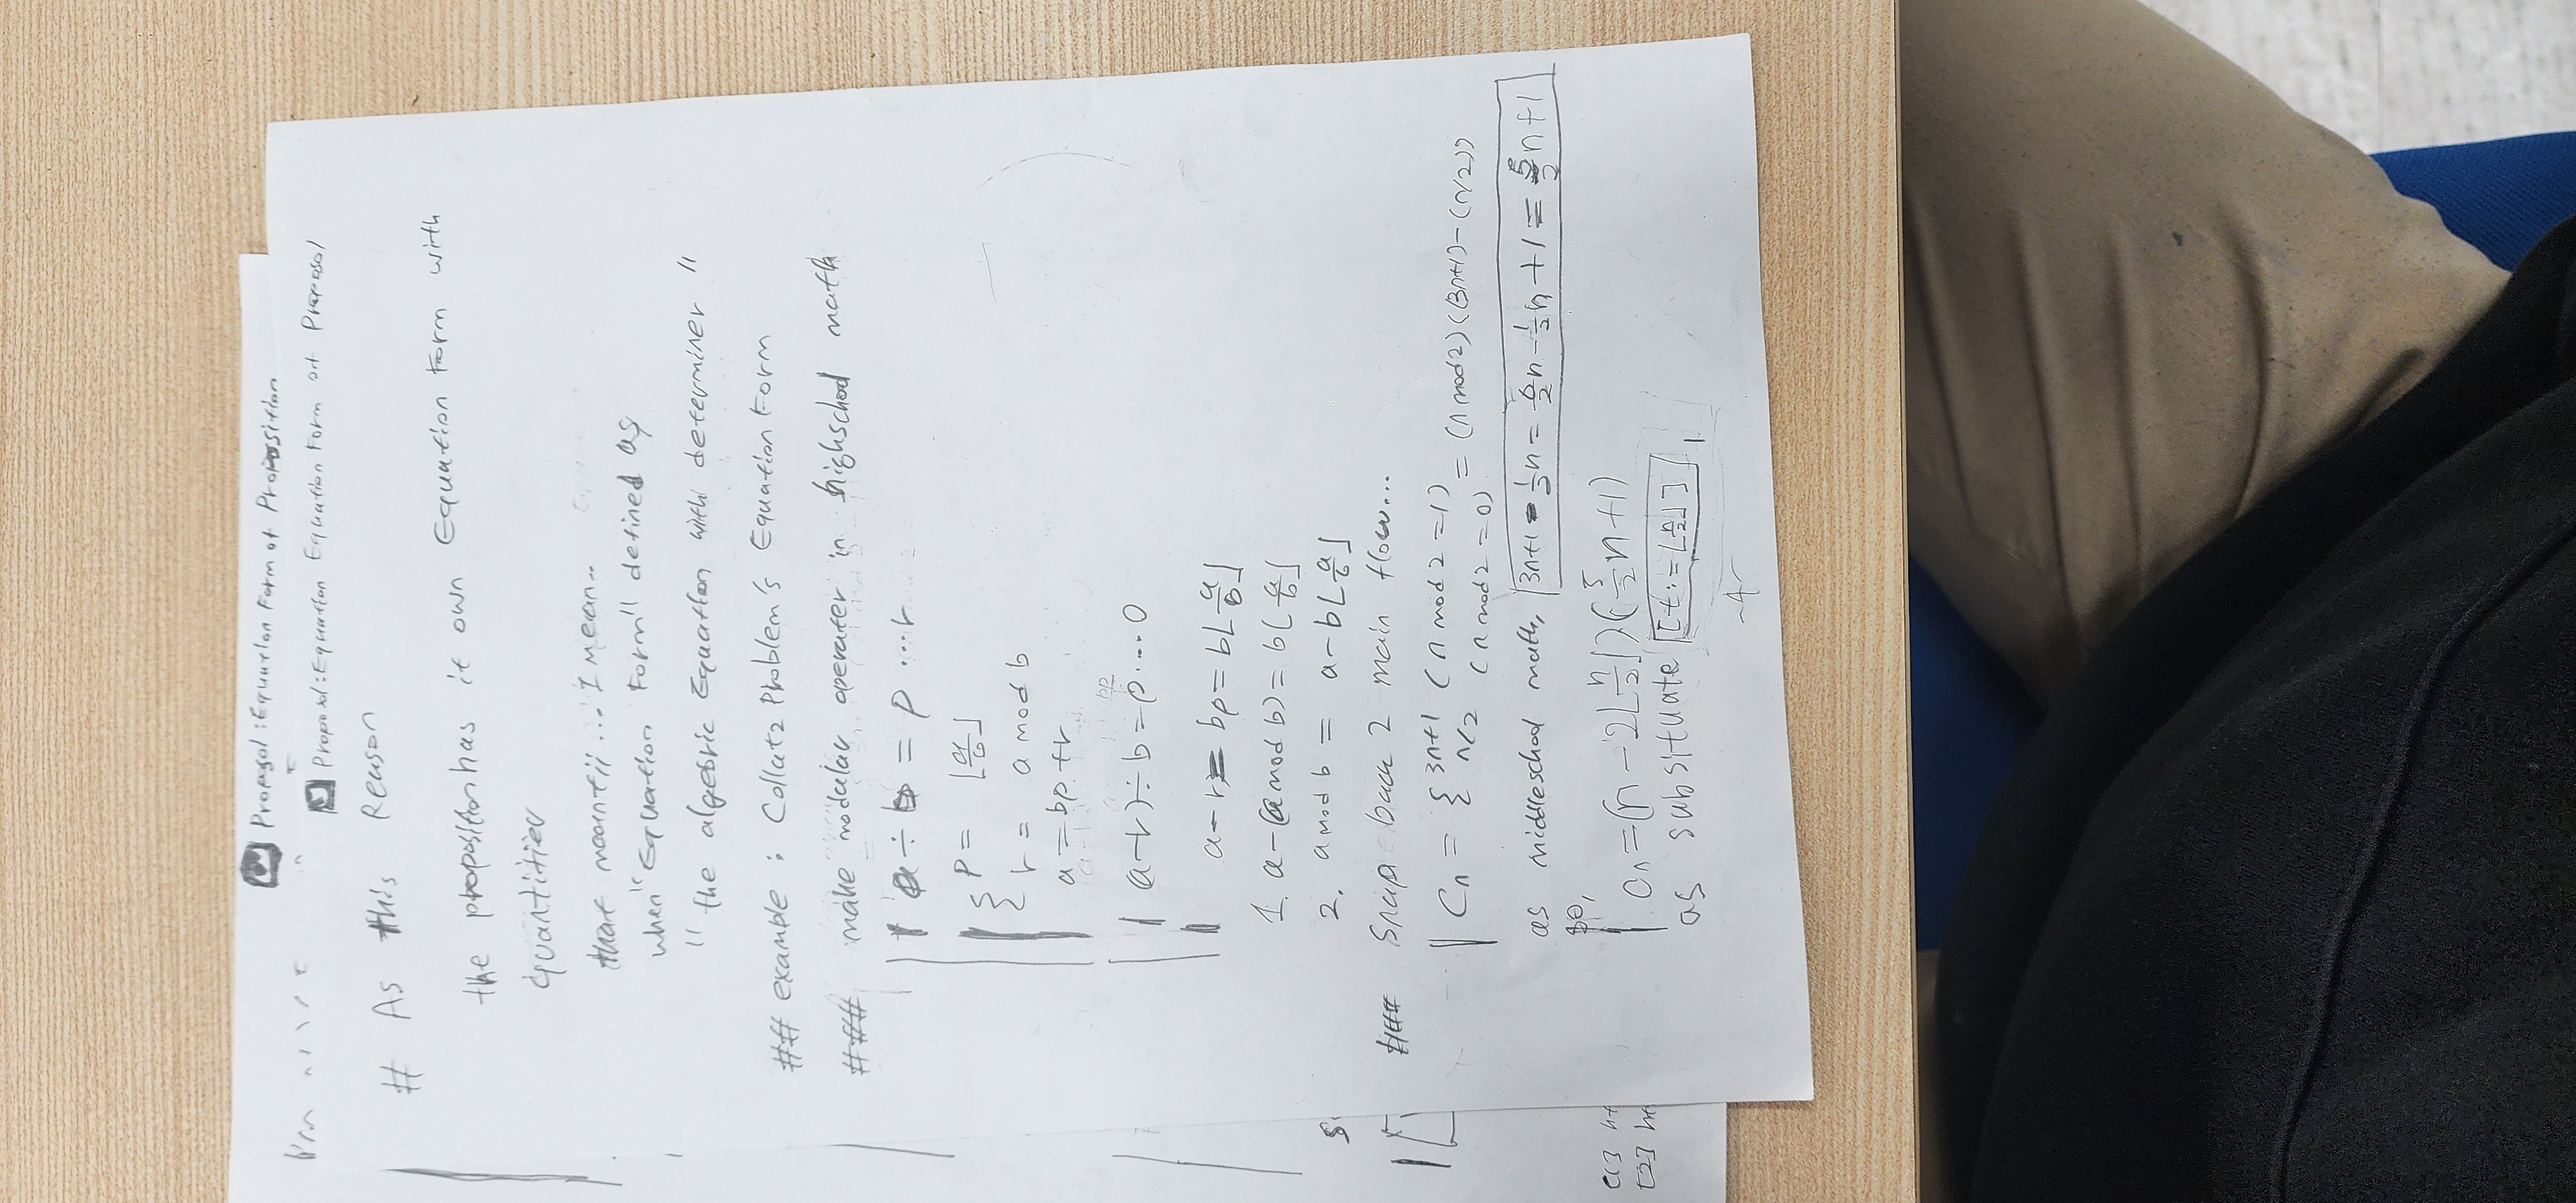 Proposol : Equation Form of Proposition
Proposol : Equation Equation Form of Proposol
# As this Reason
the proposition has it own Equation Form with
quantitiev
that meantii ... I mean..
when "Equation Form" defined as
" the algebric Equation with determiner "
## example : Collatz Problem's Equation Form
### make modular operater in highschool math
a ÷ b = p ⋯ r
{ p = ⌊a/b⌋
r = a mod b
a = bp + r
(a-r) ÷ b = p ⋯ 0
a - r = bp = b⌊a/b⌋
1. a - (a mod b) = b⌊a/b⌋
2. a mod b = a - b⌊a/b⌋
### Snap back 2 main flow...
Cn = { 3n+1 (n mod 2 = 1)
n/2 (n mod 2 = 0) = (n mod 2)((3n+1) - (n/2))
as middleschool math, 3n+1 - 1/2 n = 6/2 n - 1/2 n + 1 = 5/2 n + 1
so,
Cn = (n - 2⌊n/2⌋)(5/2 n + 1)
as subsituate [t := ⌊n/2⌋],
-4-
S
[1] ht
[2] ht